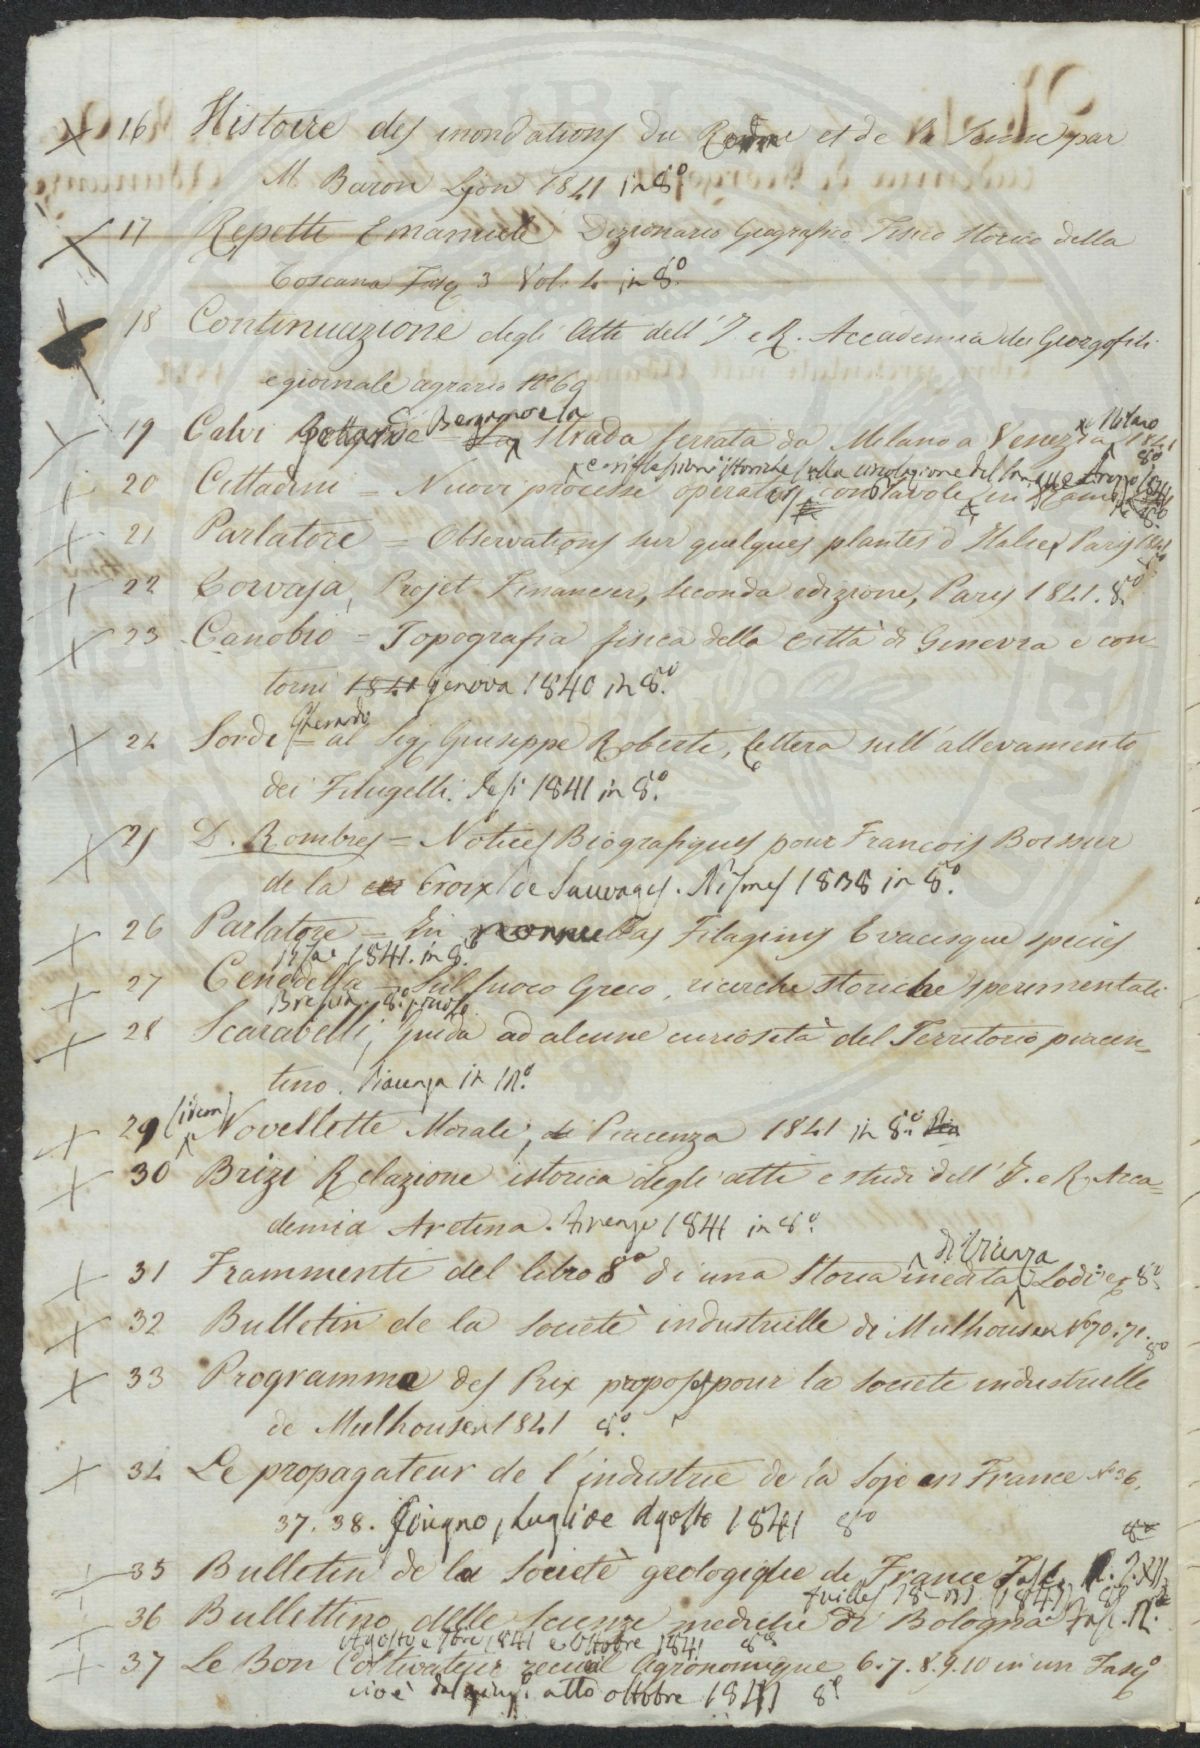 16 Histoire des inondations du Rodne et de la Saune par
M. Baron Lyon 1841 in 8º
17 Repetti Emanuele Dizionario Geografico Fisico Storico della
Toscana Fasc 3 Vol. 4 in 8º.
18 Continuazione degli Atti dell' I. e R. Accademia dei Georgofili
e giornale agrario Nº 69
19 Calvi Gottardo e Bergamo e la Strada ferrata da Milano a Venezia Milano 1841
8º
e riflessioni istoriche sulla
20 Cittadini = Nuovi processi operatorj con tavole in Rame
21 Parlatore = Observations sur quelques plantes d'Italie, Paris 1841
8º
22 Corvaja, Projet Financier, Seconda edizione, Paris 1841. 8º
23 Canobio = Topografia fisica della Città di Genevra e con-
torni 1841 Genova 1840 in 8º.
24 Sordi Gherardo = al Sig. Giuseppe Roberti, lettera sull' allevamento
dei Filugelli. Jesi 1841 in 8º.
25 D. Rombres = Notices Biografiques pour Francois Boissier
de la Croix de Sauvages. Nismes 1838 in 8º.
26 Parlatore = In nonnullas Filaginis Evacisque species
1841. in 8º
27 Cenedella = Sul fuoco Greco, ricerche storiche sperimentali
Brescia. 8º
28 Scarabelli, Guida ad alcune curiosità del Territorio piacen-
tino. Piacenza in 12º.
29 (idem) Novellette Morali, di Piacenza 1841 in 8º.
30 Brizi Relazione istorica degli atti e studi dell' I. e R. Acca-
demia Aretina. Firenze 1841 in 8º.
31 Frammenti del libro 8º di una Storia inedita di Brianza Lodi 8º.
32 Bulletin de la Societè industrielle di Mulhousen Nº 70. 71.
8º
33 Programma des Prix proposes pour la Societe industrielle
de Mulhousen 1841 8º.
34 Le propagateur de l'industrie de la Soje en France Nº 36,
37. 38. Giugno, Luglio e Agosto 1841 8º
35 Bulletin de la Societè geologique di France
36 Bullettino delle Scienze mediche di Bologna Fasc. di
Agosto e 7bre 1841 e Ottobre 1841 8º
37 Le Bon Coltivateur recueil Agronomique 6. 7. 8. 9. 10 in un Fascº
cioè dal giugº. allo ottobre 1841 8º